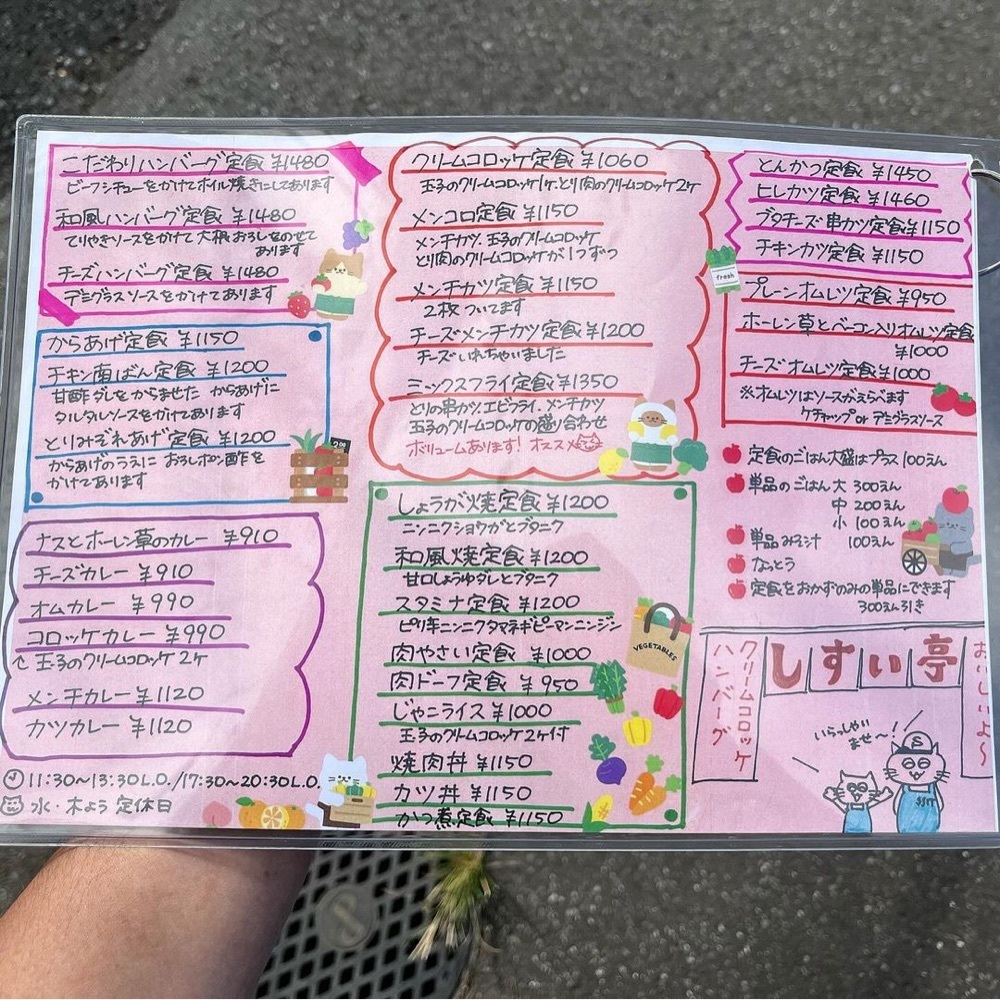 こだわりハンバーグ定食 ¥1480
ビーフシチューをかけてホイル焼きにしてあります
和風ハンバーグ定食 ¥1480
てりやきソースをかけて大根おろしをのせて
あります
チーズハンバーグ定食 ¥1480
デミグラスソースをかけてあります
からあげ定食 ¥1150
チキン南ばん定食 ¥1200
甘酢ダレをからませた からあげに
タルタルソースをかけてあります
とりみぞれあげ定食 ¥1200
からあげのうえに おろしポン酢を
かけてあります
ナスとホーレン草のカレー ¥910
チーズカレー ¥910
オムカレー ¥990
コロッケカレー ¥990
玉子のクリームコロッケ 2ケ
メンチカレー ¥1120
カツカレー ¥1120
11:30~13:30L.O./17:30~20:30L.O.
水・木よう 定休日
クリームコロッケ定食 ¥1060
玉子のクリームコロッケ1ケ.とり肉のクリームコロッケ2ケ
メンコロ定食 ¥1150
メンチカツ、玉子のクリームコロッケ
とり肉のクリームコロッケが1つずつ
メンチカツ定食 ¥1150
2枚ついてます
チーズメンチカツ定食 ¥1200
チーズいれちゃいました
ミックスフライ定食 ¥1350
とりの串カツ、エビフライ、メンチカツ
玉子のクリームコロッケの盛り合わせ
ボリュームあります! オススメ
しょうが焼定食 ¥1200
ニンニクショウガとブタニク
和風焼定食 ¥1200
甘口しょうゆダレとブタニク
スタミナ定食 ¥1200
ピリ辛ニンニクタマネギピーマンニンジン
肉やさい定食 ¥1000
肉ドーフ定食 ¥950
じゃこライス ¥1000
玉子のクリームコロッケ2ケ付
焼肉丼 ¥1150
カツ丼 ¥1150
かつ煮定食 ¥1150
とんかつ定食 ¥1450
ヒレカツ定食 ¥1460
ブタチーズ串カツ定食 ¥1150
チキンカツ定食 ¥1150
fresh
プレーンオムレツ定食 ¥950
ホーレン草とベーコン入りオムレツ定食
¥1000
チーズオムレツ定食 ¥1000
※オムレツはソースがえらべます
ケチャップ or デミグラスソース
定食のごはん大盛はプラス100えん
単品のごはん 大 300えん
中 200えん
小 100えん
単品みそ汁 100えん
なっとう
定食をおかずのみの単品にできます
300えん引き
VEGETABLES
クリームコロッケ
ハンバーグ
しすい亭
おいしいよ~
いらっしゃい
ませ~!
S
SST